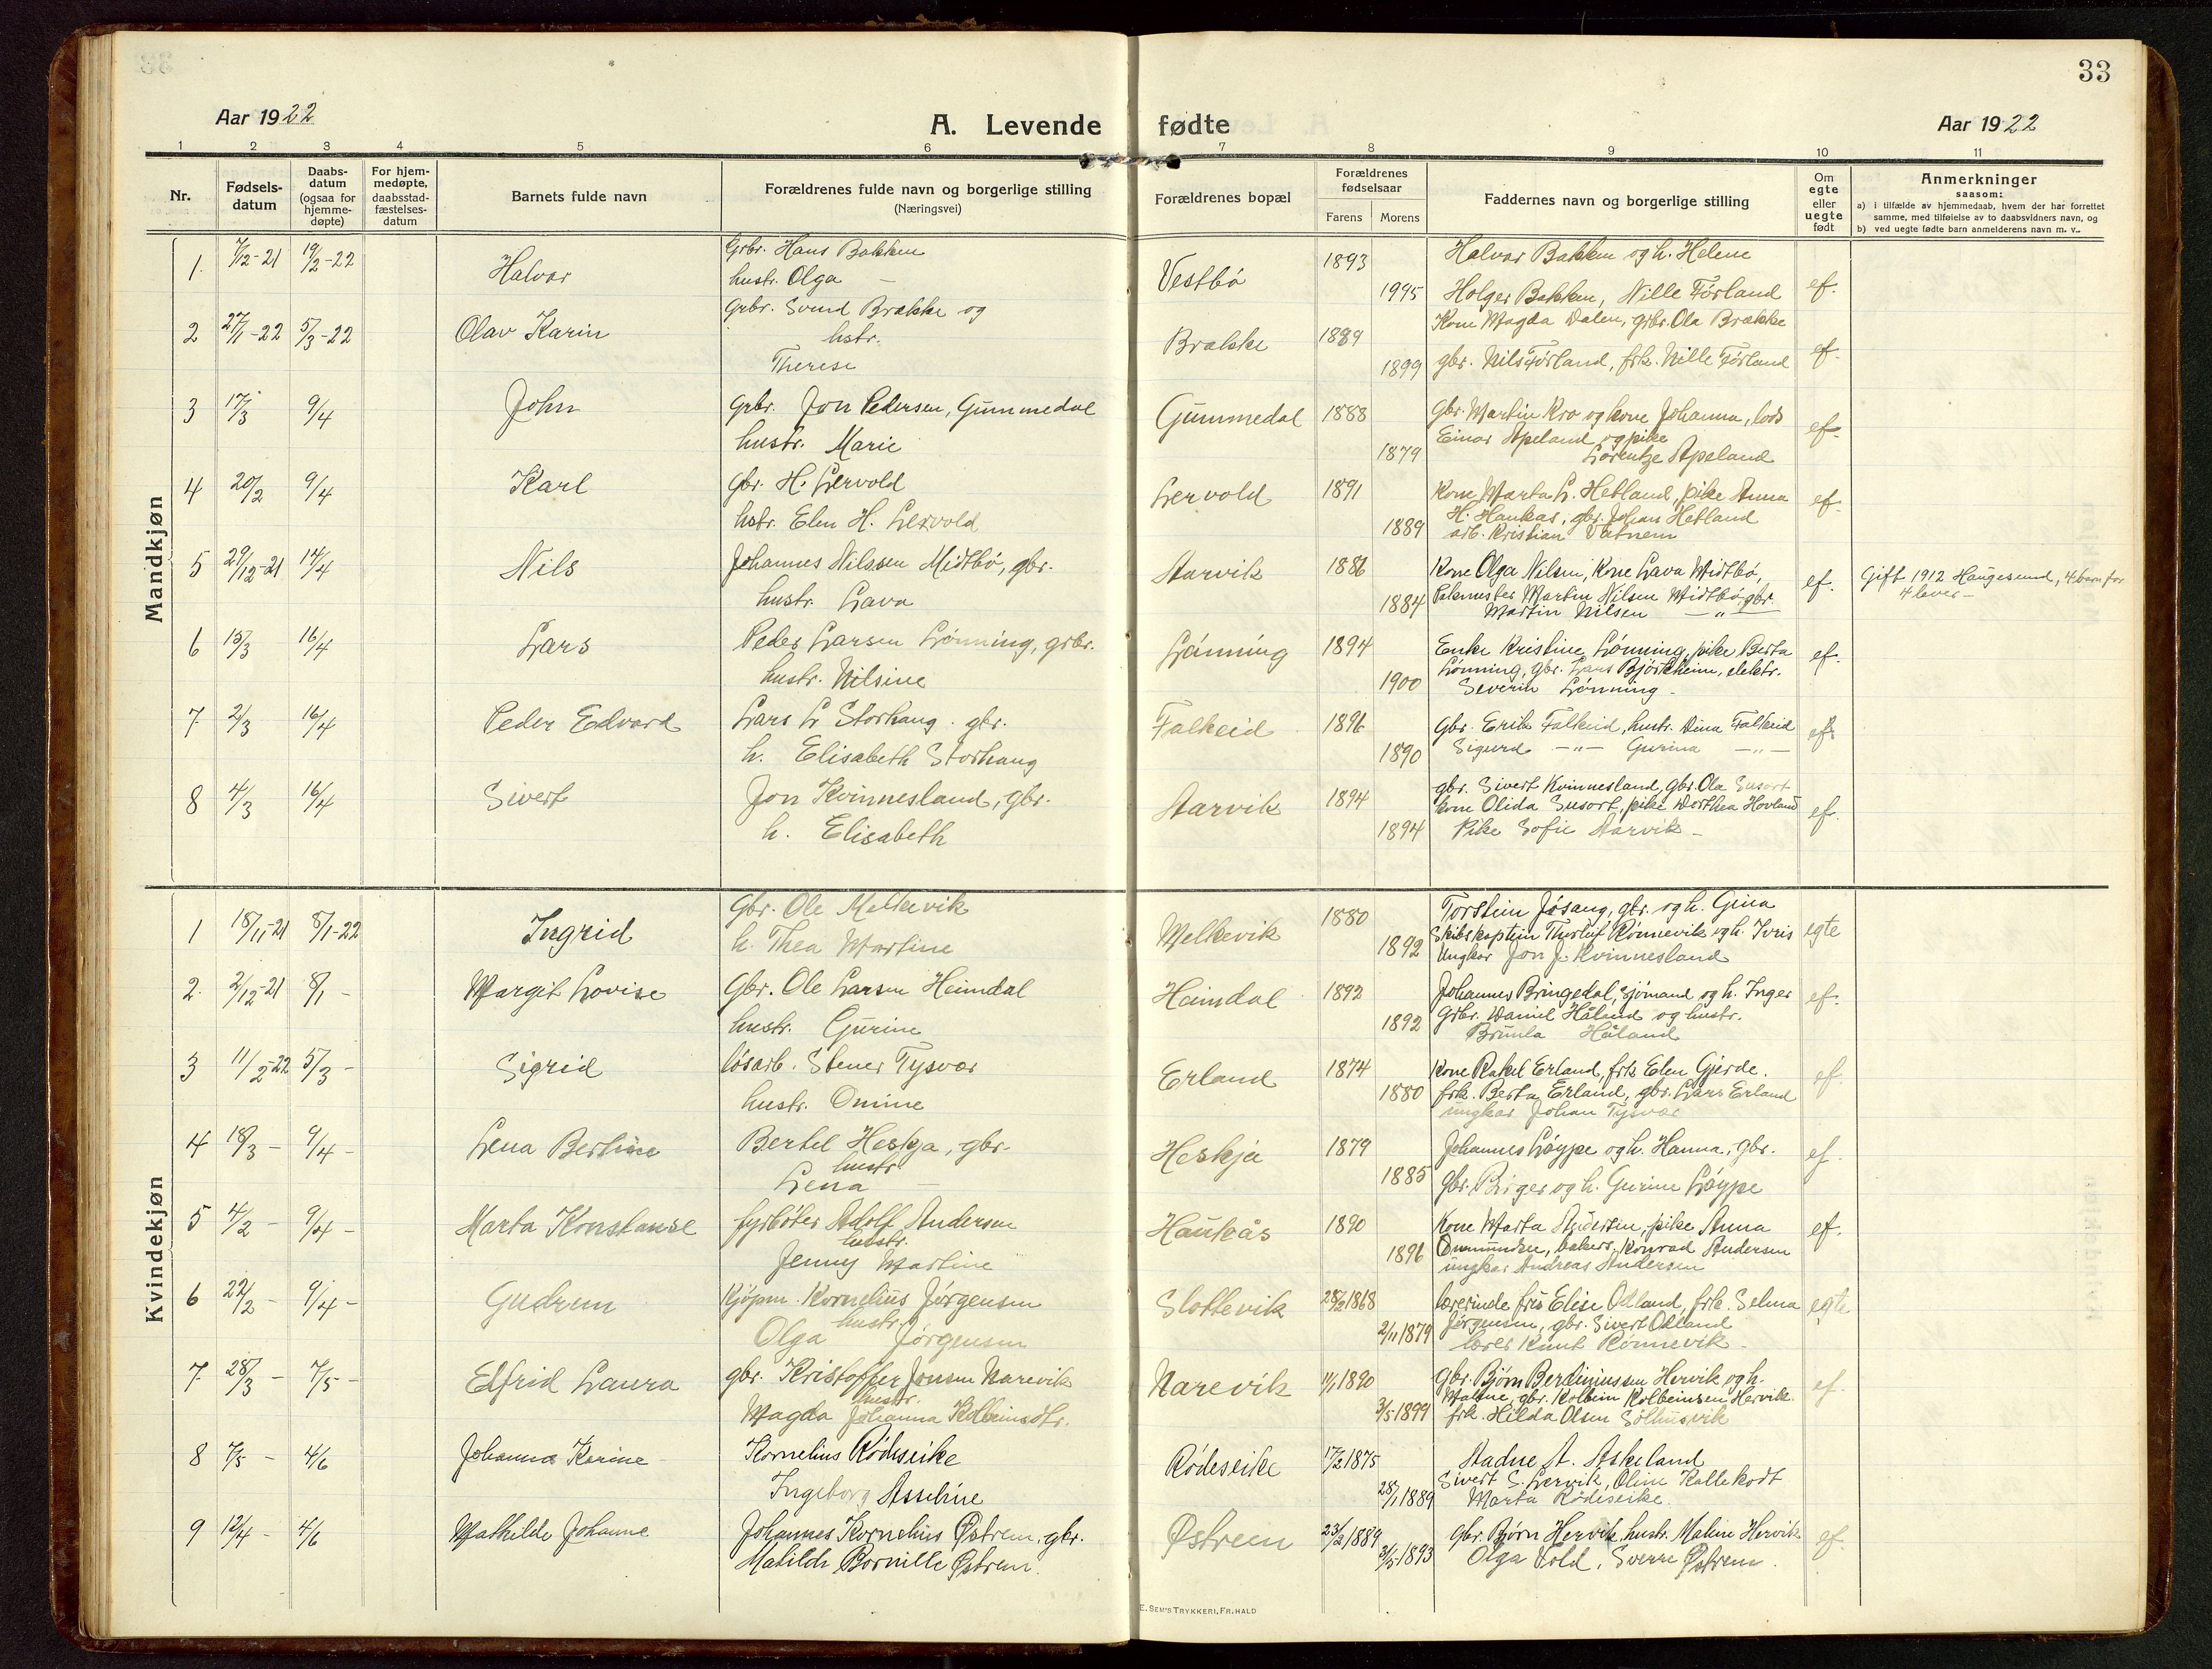 33
Aar 1922
A. Levende fødte
Aar 1922
1 2 3 4 5 6 7 8 9 10 11
Nr.
Fødsels-
datum
Daabs-
datum
(ogsaa for
hjemme-
døpte)
For hjem-
medøpte,
daabsstad-
fæstelses-
datum
Barnets fulde navn
Forældrenes fulde navn og borgerlige stilling
(Næringsvei)
Forældrenes bopæl
Forældrenes
fødselsaar
Farens Morens
Faddernes navn og borgerlige stilling
Om
egte
eller
uegte
født
Anmerkninger
saasom:
a) i tilfælde av hjemmedaab, hvem der har forrettet
samme, med tilføielse av to daabsvidners navn, og
b) ved uegte fødte barn anmelderens navn m. v..
Mandkjøn
1. 7/12-21 19/2-22 Halvar Grbr. Hans Bakken Vestbö 1893 Halvar Bakken og h. Helene
hustr. Olga — 1995 Holger Bakken, Nille Förland ef.
2 27/1-22 5/3-22 Olav Karin Grbr. Svend Brække og Brække 1889 Kone Magda Dalen, grbr. Ola Brække
hstr. ef.
Therese 1899 gbr. Nils Förland, frk. Nille Förland
3 17/3 9/4 John Grbr. Jon Pedersen, Gummedal Gummedal 1888 Gbr. Martin Kro og kone Johanna, lods ef.
hustr. Marie 1879 Einar Apeland og pike
Lorentze Apeland
4 20/2 9/4 Karl Gbr. H. Lervold Lervold 1891 Kone Marta L. Hetland, pike Anna ef.
hstr. Elen H. Lervold 1889 H. Haukas, gbr. Johan Hetland
arb. Kristian Vatnem
5 29/12-21 14/4 Nils Johannes Nilssen Midtbö, gbr. Aarvik 1886 Kone Olga Nilsen, Kone Lava Midtbö, ef. Gift 1912 Haugesund, 4 barn för
hustr. Lava 1884 Martin Nilsen Midtbö, gbr. 4 lever —
Martin Nilsen — " —
6 15/3 16/4 Lars Peder Larsen Lönning, grbr. Lönning 1894 Enke Kristine Lönning, pike Berta ef.
hustr. Nilsine 1900 Lönning, gbr. Lars Björkheim, elektr.
Severin Lönning.
7. 2/3 16/4 Peder Edvard Lars L Storhaug. gbr. Falkeid 1896 Gbr. Erik Falkeid, hustr. Dina Falkeid ef.
h. Elisabeth Storhaug 1890 Sigurd — " — Gurina — " —
8 4/3 16/4 Sivert Jon Kvinnesland, gbr. Aarvik 1894 gbr. Sivert Kvinnesland, gbr. Ola Susort ef.
h. Elisabeth 1894 kone Olida Susort, pike Dorthea Hovland
Pike Sofie Aarvik —
Kvindekjøn
1 18/11-21 8/1-22 Ingrid Gbr. Ole Melkevik Melkevik 1880 Torstein Jösang, gbr. og h. Gina egte
h. Thea Martine 1892 Skibskaptein Thorluf Rönnevik og h. Ivris
Ungkar Jon J. Kvinnesland
2. 2/12-21 8/1 - Margit Lovise Gbr. Ole Larsen Heimdal Heimdal 1892 Johannes Bringedal, sjömand og h. Inger ef.
hustr. Gurine 1892 Grbr. Daniel Håland og hustr.
Håland
3 11/2-22 5/3 - Sigrid lösarb. Stener Tysvær Erland 1874 Kone Rakel Erland, frk Elen Gjerde. ef.
hustr. Omine 1880 frk. Berta Erland, gbr. Lars Erland
ungkar Johan Tysvær
4 18/3 - 9/4 - Lena Bertine Bertel Heskja, gbr. Heskja 1879 Johannes Löyppe og h. Hanna, gbr. ef.
hustr.
Lena — 1885 gbr. Birger og h. Gurine Löyppe
5 4/2 - 9/4 - Marta Konstanse fyrböter Adolf Andersen Haukås 1890 Kone Marta Andersen, pike Anna ef.
hustr.
Jenny Martine 1896 Ommundsen, bakers. Konrad Andersen
ungkar Andreas Andersen
6 22/2 - 9/4 - Gudrun Kjöpm. Kornelius Jörgensen Slottevik 28/2 1868 lærerinde frö Elise Odland, frk. Selma egte
hustr.
Olga Jörgensen 2/11 1879 Jörgensen, gbr. Sivert Odland
lærer Knut Rönnevik —
7. 28/3 - 7/5 - Elfrid Laura gbr. Kristoffer Jonsen Narevik Narevik 11/1 1890 Gbr. Björn Berdiniussen Hervik og h. ef.
hustr.
Magda Johanna Kolbeinsdtr. 3/5 1899 Maline, gbr. Kolbein Kolbeinsen Hervik.
frk. Hilda Olsen Solhusvik
8 7/5 - 4/6 Johanna Karine Kornelius Rödeseike Rödeseike 17/2 1875 Aadne A. Askeland
Ingeborg Asseline 28/1 1889 Sivert S. Lervik, Oline Kallekodt
Marta Rödeseike.
9 12/4 - 4/6 Mathilde Johanne Johannes Kornelius Østrem, gbr. Østrem 23/2 1889 gbr. Bjørn Hervik, hustr. Maline Hervik ef.
Matilde Bornille Østrem. 31/5 1893 Olga Vold, Sverre Østrem.
E. SEM'S TRYKKERI, FR.HALD